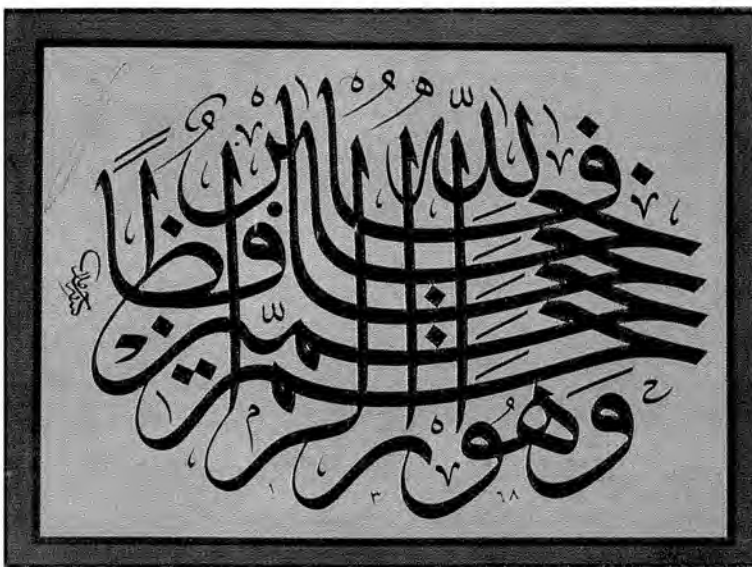 فالله خير حافظا وهو ارحم الراحمين
١٣٦٨